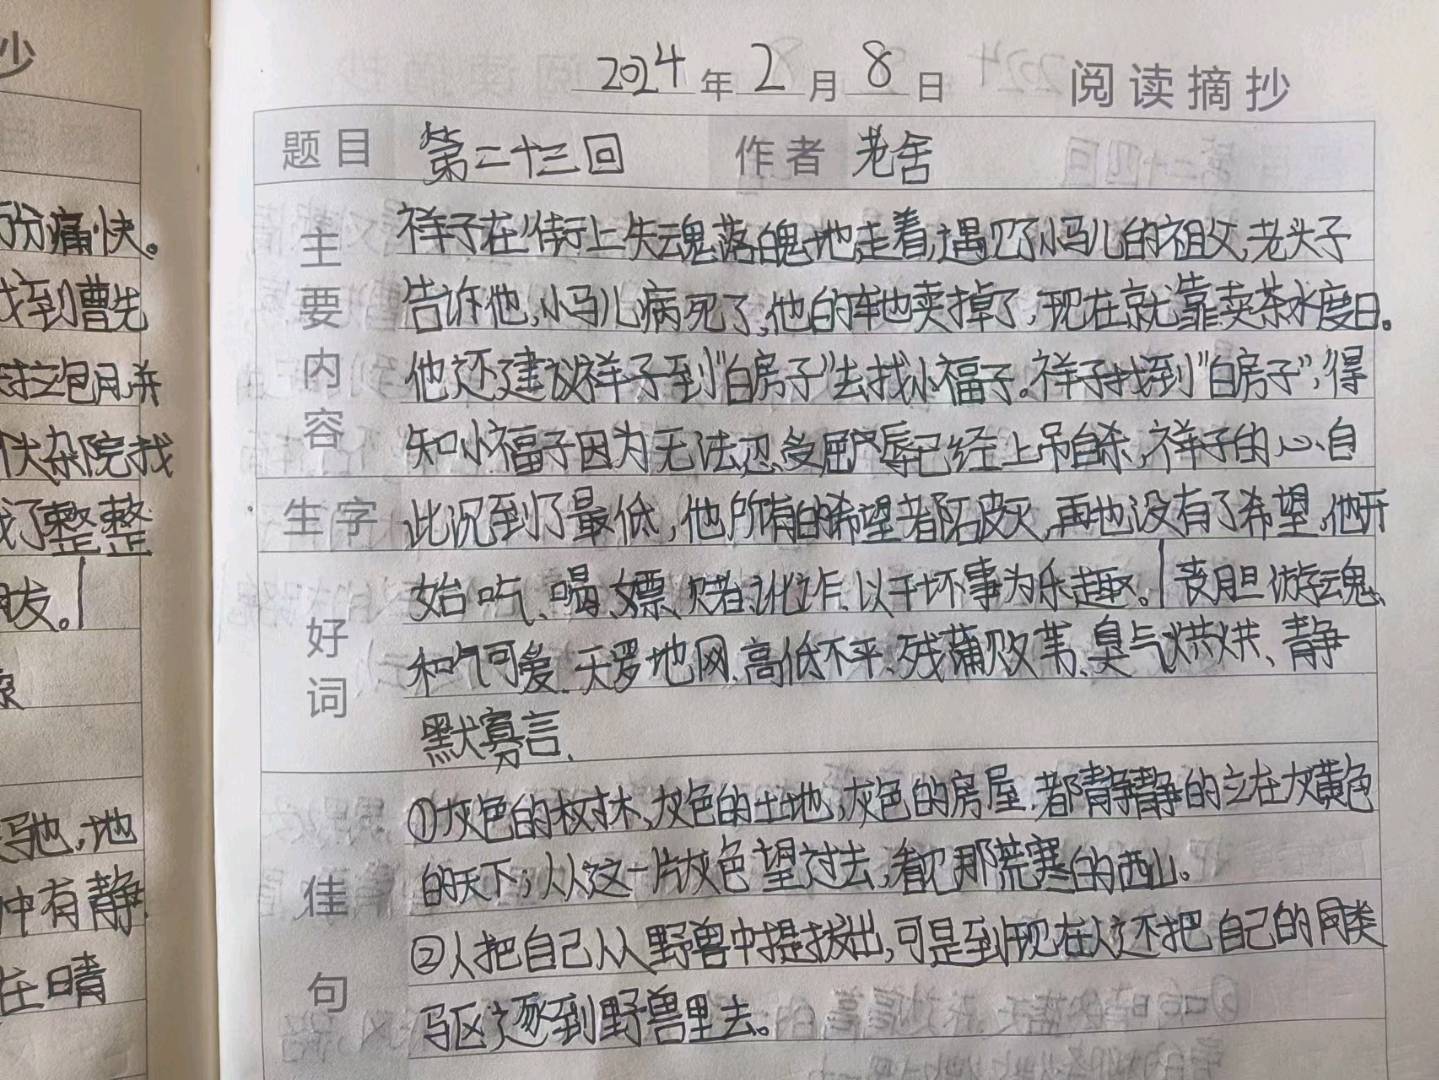 抄
痛快。
找到曹先
拉包月,并
大杂院找
了整整
发。
地
中有静
在晴
2024年2月8日 阅读摘抄
题目 第二十三回 作者 老舍
主要内容
祥子在街上失魂落魄地走着,遇见了小马儿的祖父,老头子
告诉他,小马儿病死了,他的车也卖掉了,现在就靠卖茶水度日。
他还建议祥子到"白房子"去找小福子。祥子找到"白房子",得
知小福子因为无法忍受屈辱已经上吊自杀,祥子的心自
生字 此沉到了最低,他所有的希望都破灭,再也没有了希望,他开
始吃、喝、嫖、赌、讹诈、以干坏事为乐趣。丧胆游魂、
好词
和气可爱、天罗地网、高低不平、残蒲败苇、臭气烘烘、静
默寡言、
佳句
①灰色的树木,灰色的土地,灰色的房屋,都静静的立在灰黄色
的天下;从这一片灰色望过去,看见那荒寒的西山。
②人把自己从野兽中提拔出,可是到现在人还把自己的同类
驱逐到野兽里去。